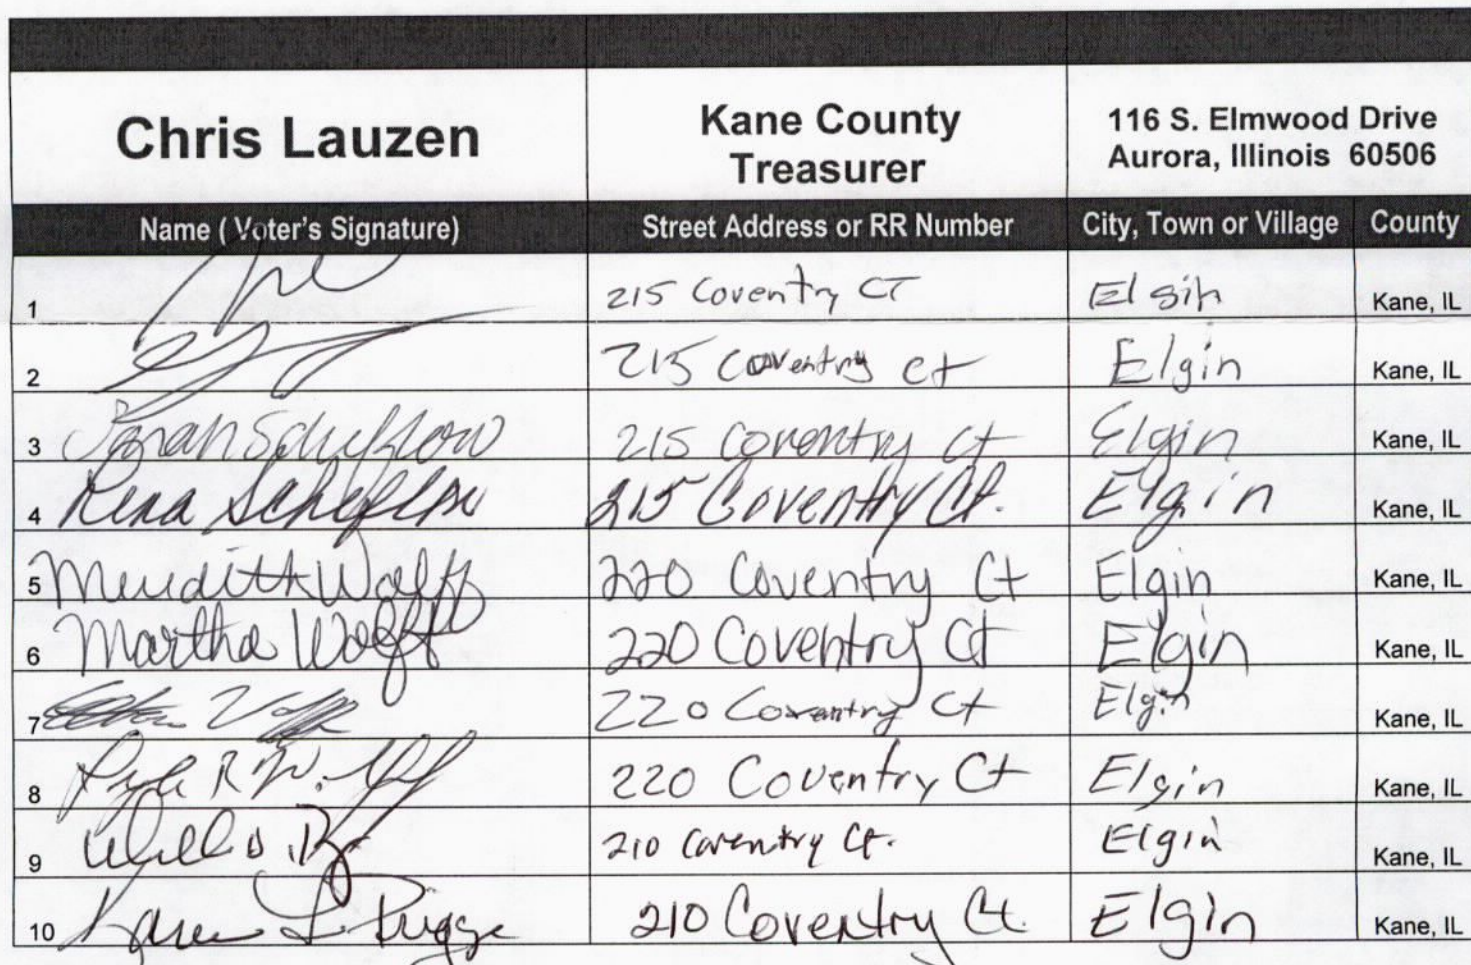 Chris Lauzen
Kane County
Treasurer
116 S. Elmwood Drive
Aurora, Illinois 60506
Name ( Voter's Signature) Street Address or RR Number City, Town or Village County
1 215 Coventry CT Elgin Kane, IL
2 215 Coventry ct Elgin Kane, IL
3 215 Coventry ct Elgin Kane, IL
4 Rena Scheflow 215 Coventry Ct. Elgin Kane, IL
5 Meredith Wolff 220 Coventry Ct Elgin Kane, IL
6 Martha Wolff 220 Coventry Ct Elgin Kane, IL
7 220 Coventry Ct Elgin Kane, IL
8 220 Coventry Ct Elgin Kane, IL
9 210 Coventry Ct. Elgin Kane, IL
10 Karen L 210 Coventry Ct. Elgin Kane, IL